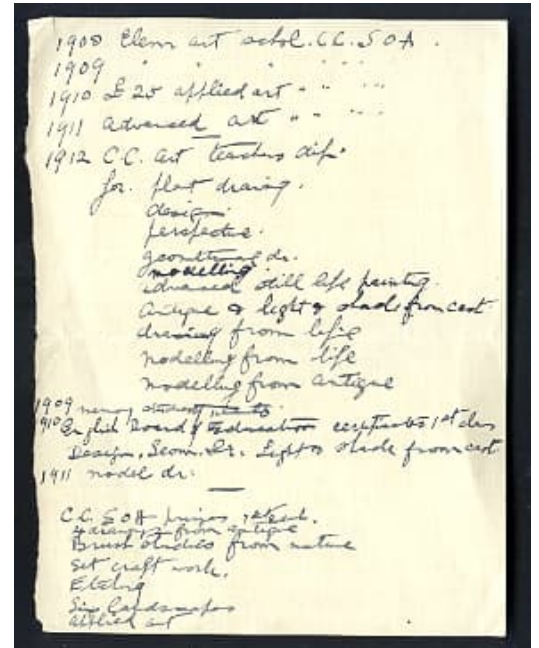 1908 Elem art schol. C.C. S O A.
1909 " " " "
1910 £20 applied art " " "
1911 advanced art " " "
1912 C.C. art teachers dip.
for. plant drawing.
design.
perspective.
geometrical dr.
modelling.
advanced still life painting.
Antique & light & shade from cast
drawing from life
modelling from life
modelling from antique
1909
1910 English Board of Education certificates 1st class
Design, Geom. Dr. Light & shade from cast
1911 model dr.
C.C. SOA prizes
4 drawings from antique
Brush studies from nature
Set craft work.
Etching
Six landscapes
applied art